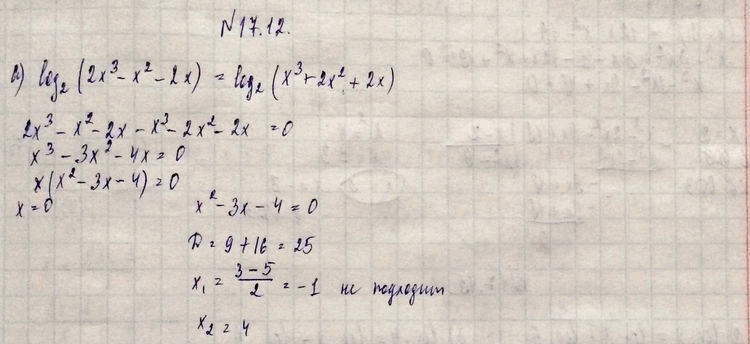 №17.12.
а) log₂(2x³-x²-2x) = log₂(x³+2x²+2x)
2x³-x²-2x-x³-2x²-2x = 0
x³-3x²-4x=0
x(x²-3x-4)=0
x=0 x²-3x-4=0
D=9+16=25
x₁ = (3-5)/2 = -1 не подходит
x₂=4